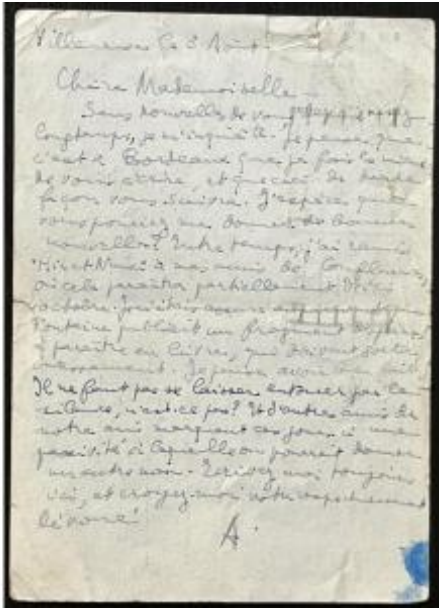 Villeneuve le 8 Août
Chère Mademoiselle —
Sans nouvelles de vous depuis
longtemps, je m'inquiète. Je pense que
c'est à Bordeaux que je fais le mieux
de vous écrire, et que ceci de
façon vous suivra. J'espère que
vous pourrez me donner de bonnes
nouvelles? Entre temps, j'ai remis
à nos amis de Confluences,
où cela paraîtra partiellement
octobre.
Fontaine publiait un fragment
à paraître en livres, qui doivent
. Je pense avoir
Il ne faut pas se laisser entourer par le
silence, n'est-ce pas? Et d'autres amis de
notre ami marquent ces jours-ci une
passivité à laquelle on pourrait donner
un autre nom. Ecrivez moi toujours
ici, et croyez-moi votre respectueusement
dévoué
A.